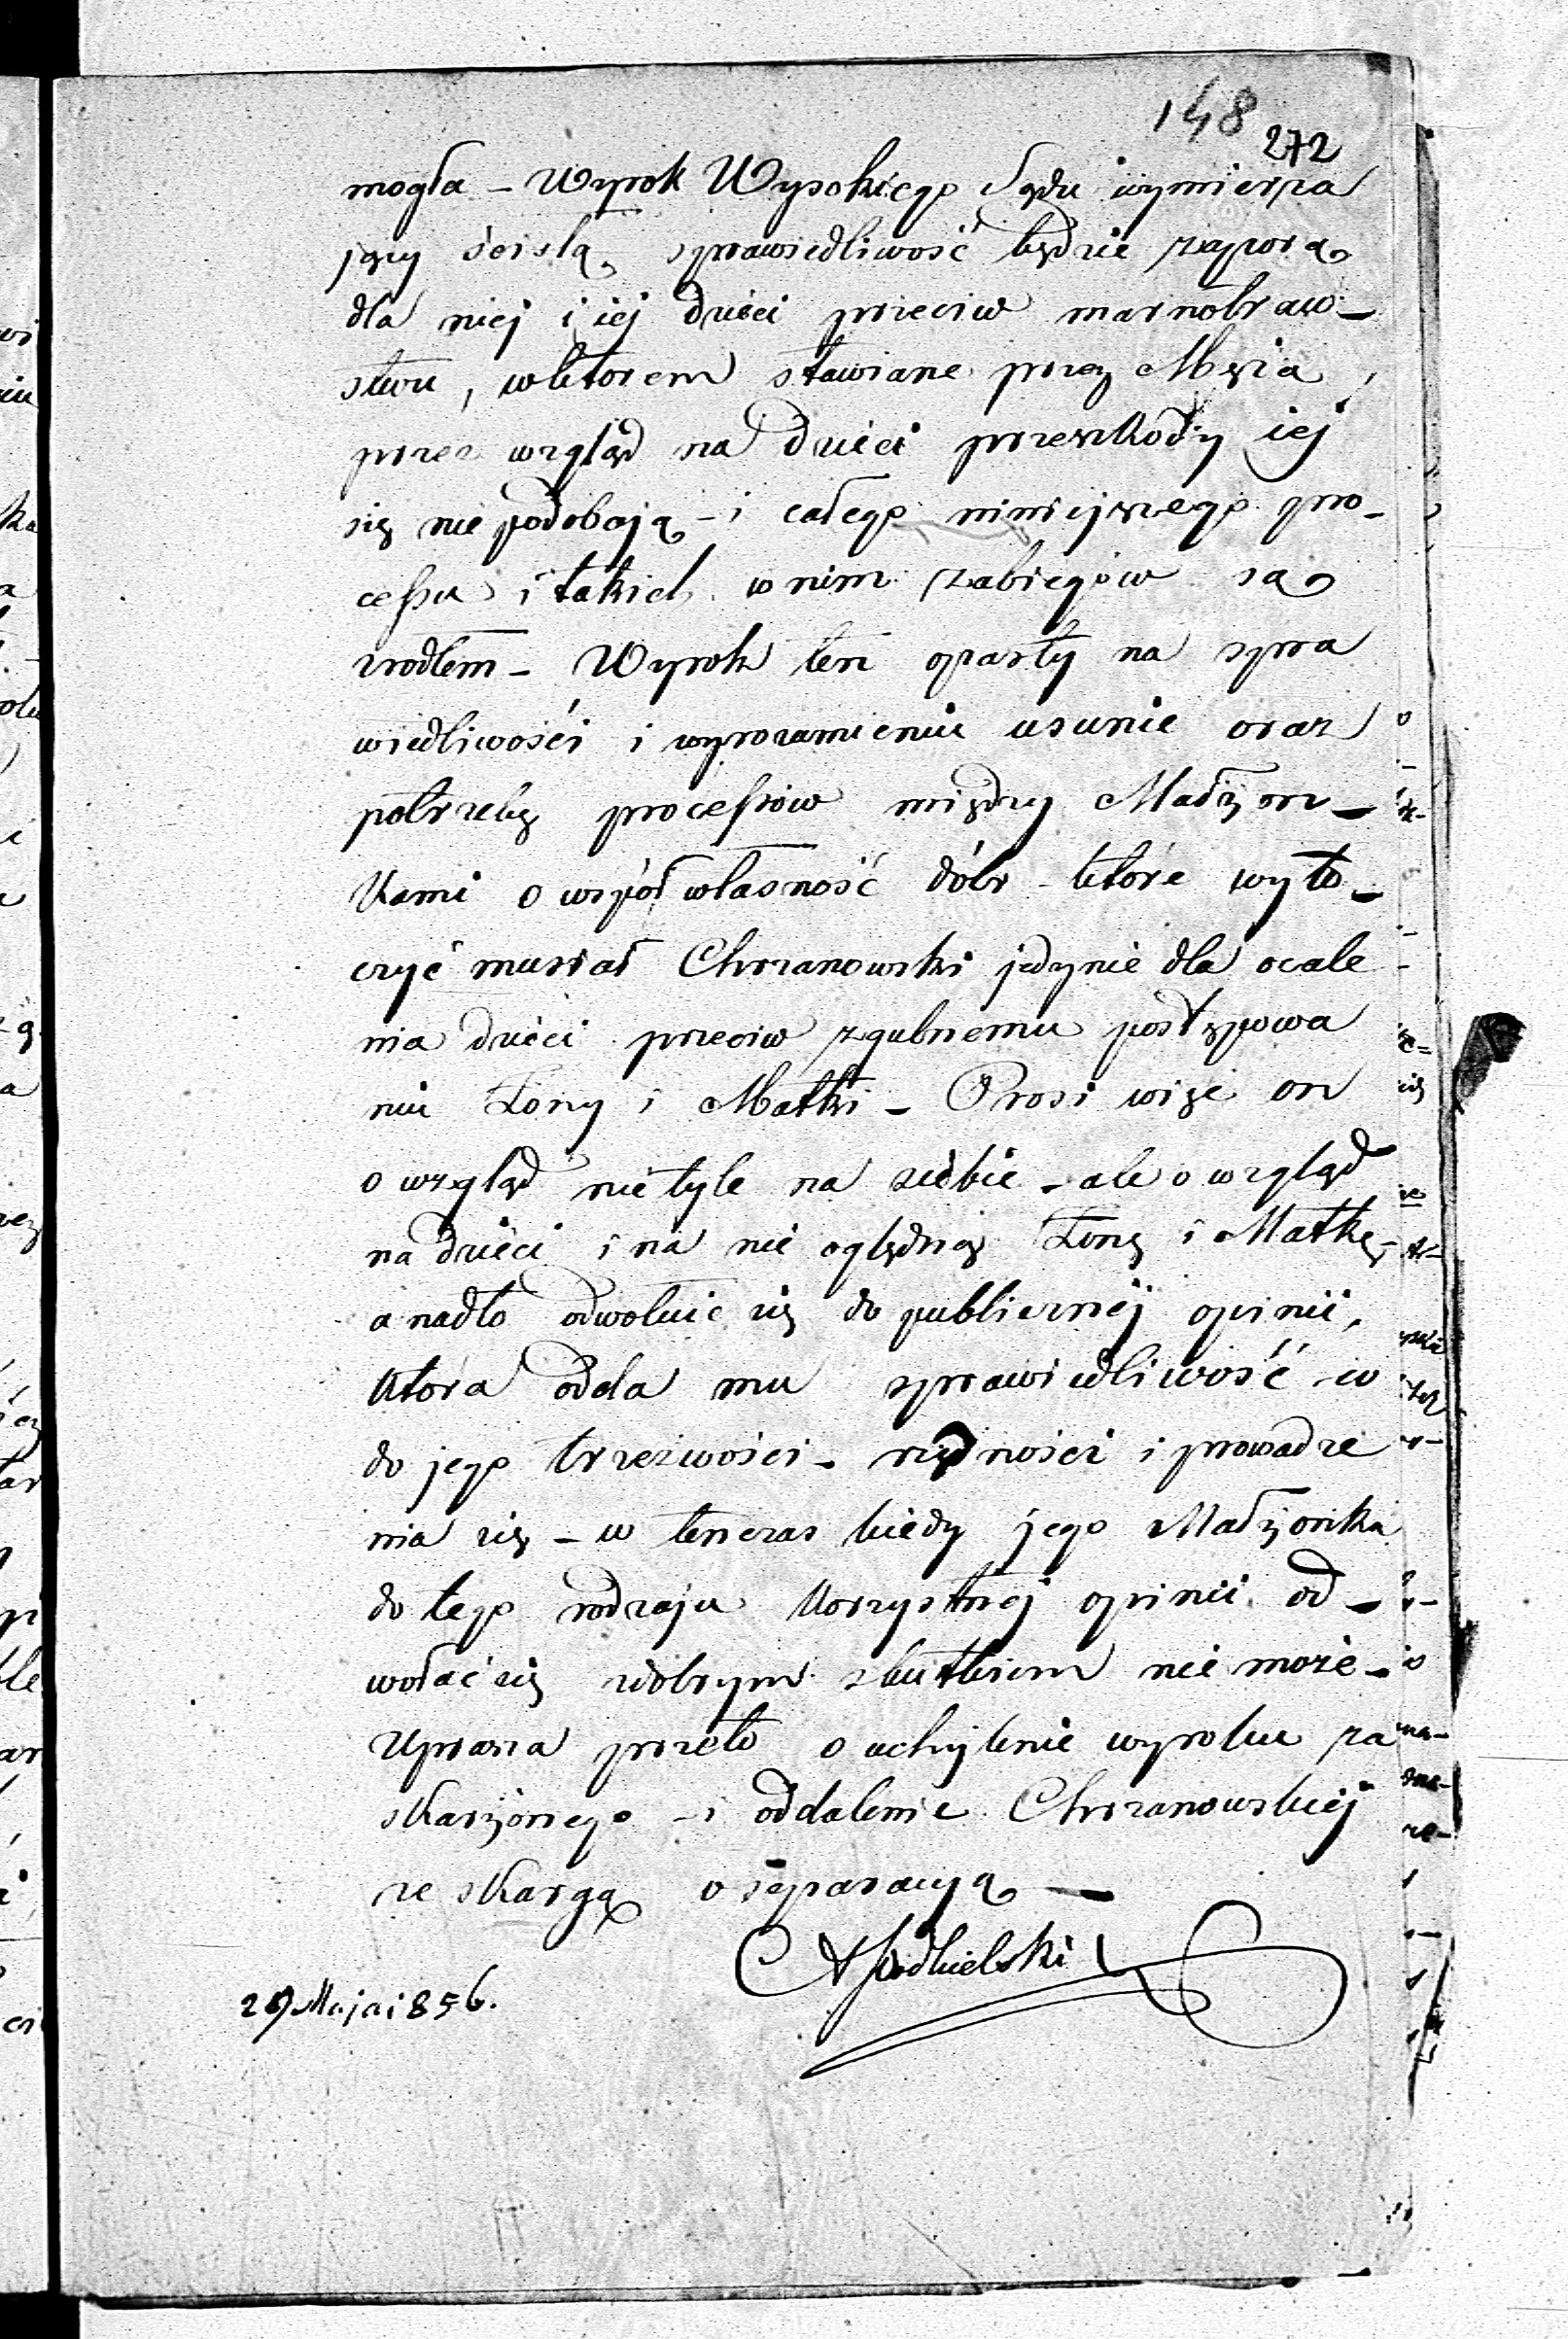 148
272
mogła – Wyrok Wysokiego Sądu wymierza
jący ścisłą, sprawiedliwość będzie zaporą
dla niej i iej dzieci przeciw marnotraw–
stwu, w którem stawiane przez Męża,
przez wzgląd na dzieci przeszkody iej
się nie podobają – i całego niniejszego pro–
cessu i takich w nim zabiegów są
zrodłem – Wyrok ten oparty na spra
wiedliwości i wyrozumieniu usunie oraz
potrzebę processów między Małżon–
kami o współwłasność dóbr – które wyto–
czyć musiał Chrzanowski jedynie dla ocale
nia dzieci przeciw zgubnemu postępowa
niu Żony i Matki – Prosi więc on
o wzgląd nietyle na siebie – ale o wzgląd
na dzieci i na nie oględną Żonę i Matkę –
a nadto odwołuie się do publicznej opinii,
która odda mu sprawiedliwość – co
do jego trzeźwości – rządności i prowadze
nia się – w tenczas kiedy jego Małżonka
do tego rodzaju korzystnej opinii od–
wołać się z dobrym skutkiem nie może –
Uprasza przeto o uchylenie wyroku za
skarżonego – i oddalenie Chrzanowskiej
ze skargą o separacyą –
A Podbielski
29 Maja 1856.